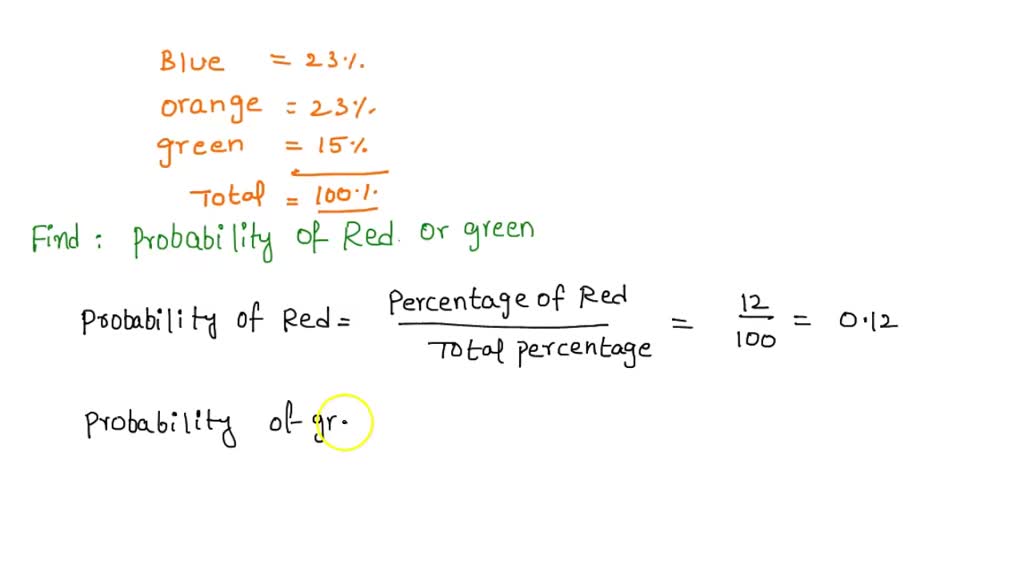 Blue = 23%
orange = 23%
green = 15%
Total = 100%
Find: Probability of Red or green
Probability of Red = Percentage of Red / Total percentage = 12/100 = 0.12
Probability of gr